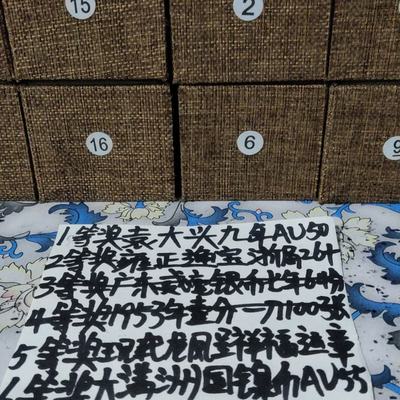 15
2
16
6
9
1等奖袁大头九年AU50
2等奖雍正通宝 浙局264
3等奖广东咸
4等奖1953年壹分一刀100张
5等奖现龙凤呈祥福运章
6等奖大洋洲 国镍币AU55